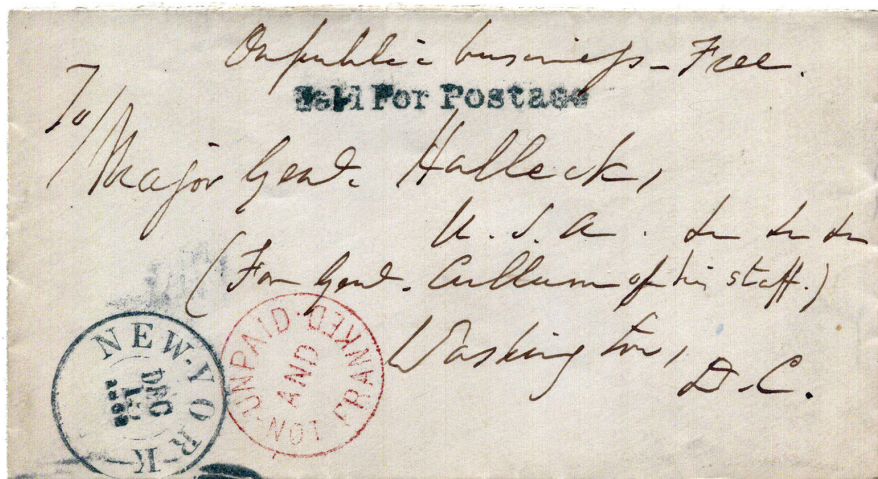 On public business - Free.
Held For Postage
To/
Major Genl. Halleck,
U.S.A. &c &c &c
(For Genl. Cullum of his staff.)
Washington,
D.C.
NEW-YORK
DEC
UNPAID AND NOT FRANKED